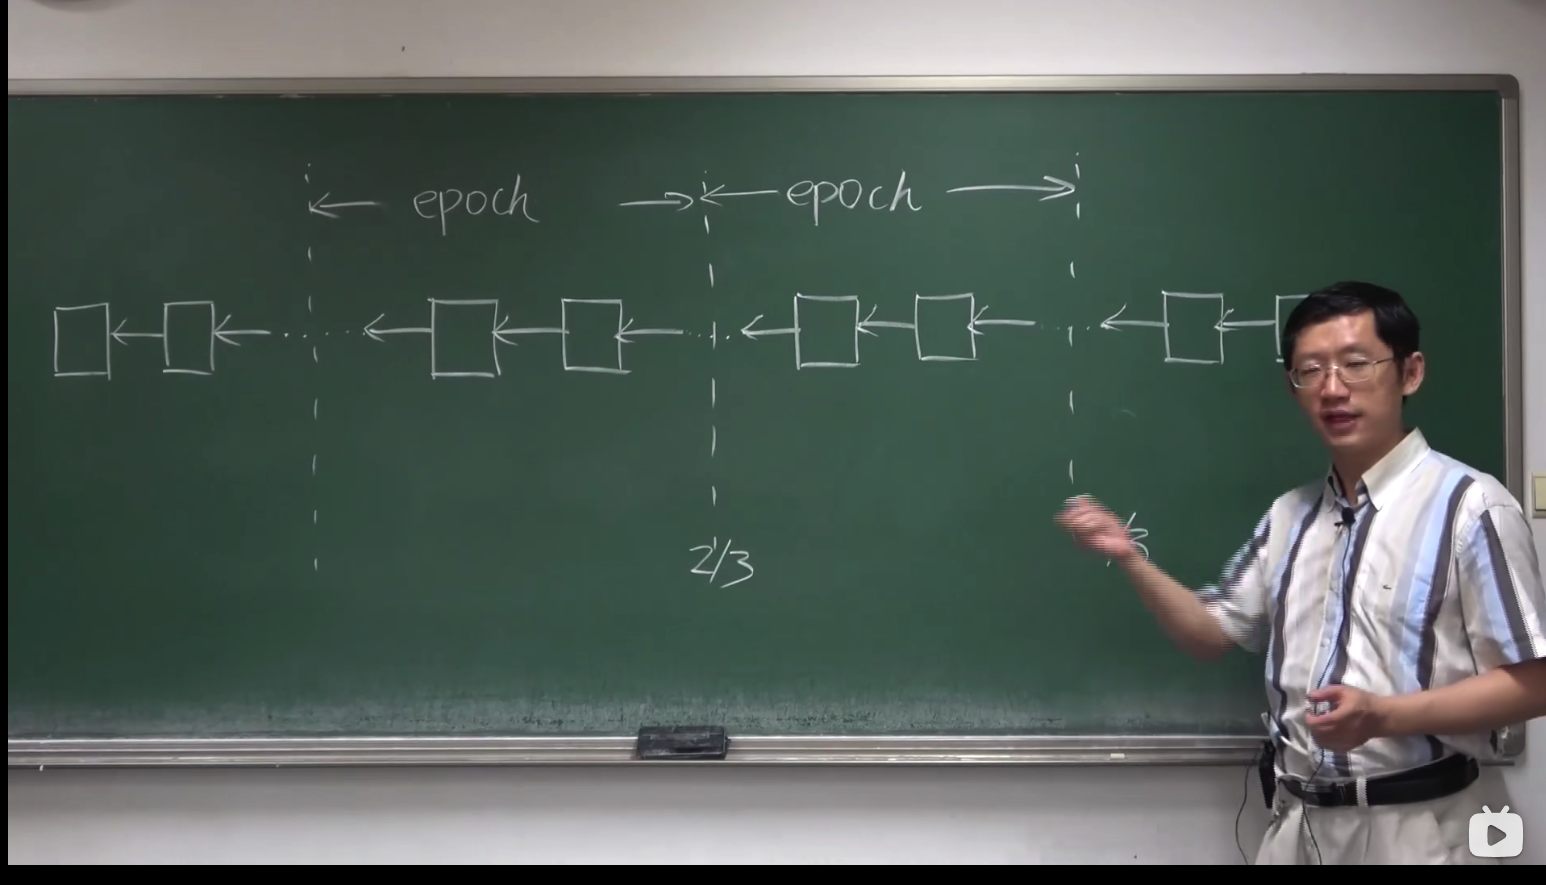 epoch epoch
2/3